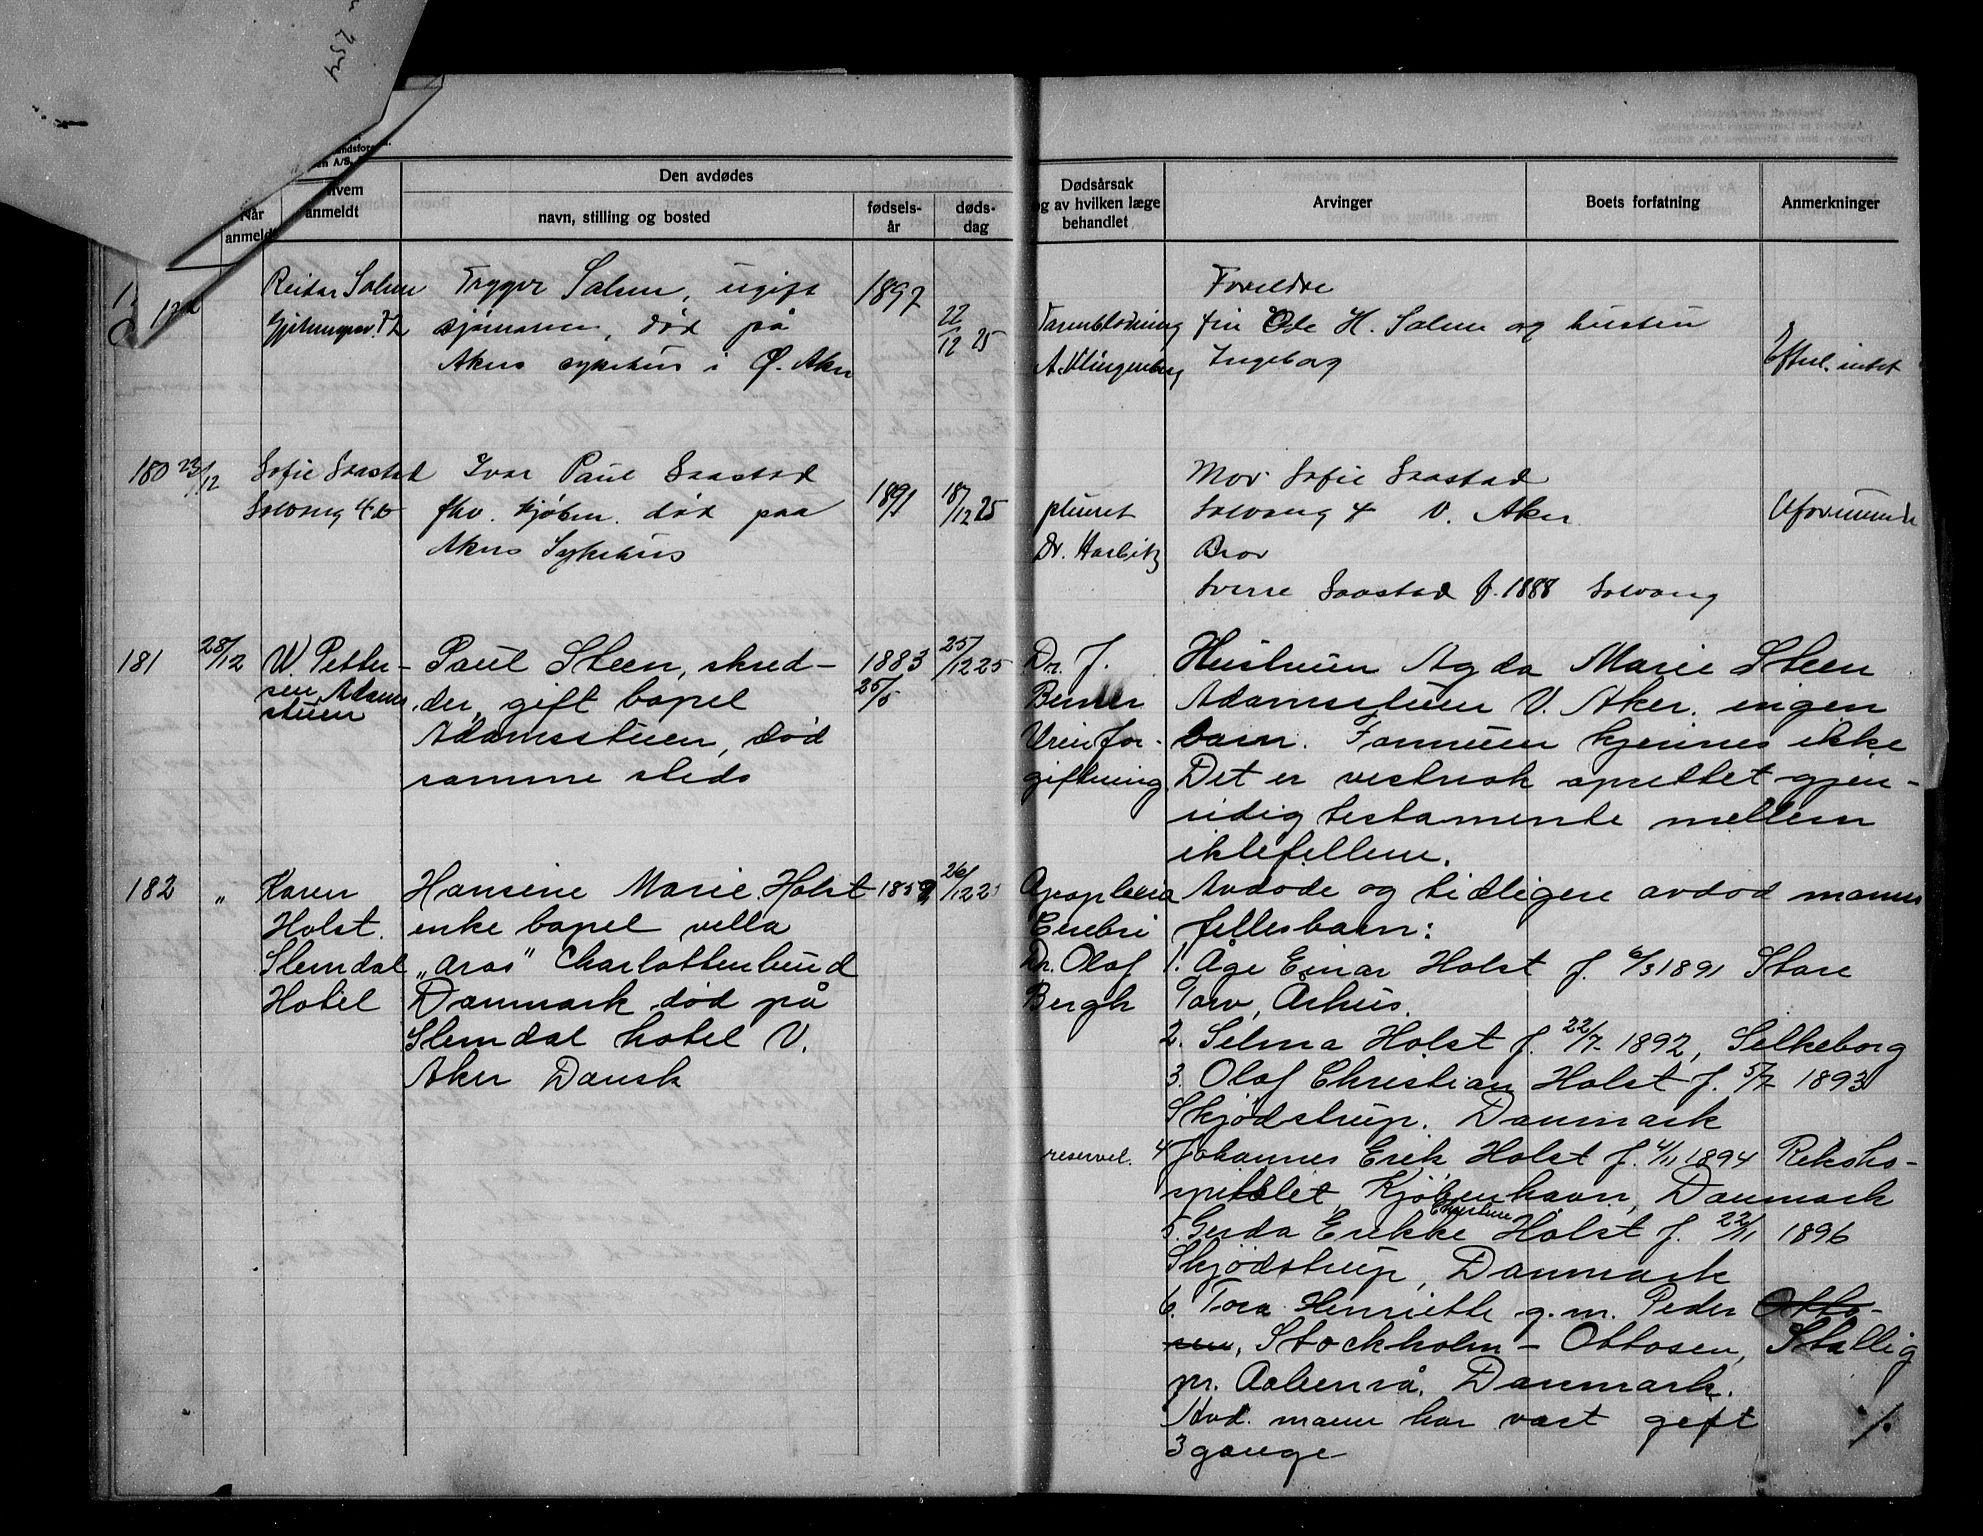 Den avdødes
Når anmeldt
hvem anmeldt
navn, stilling og bosted
fødsels-år
døds-dag
Dødsårsak og av hvilken læge behandlet
Arvinger
Boets forfatning
Anmerkninger
Reidar Solem
Trygve Solem, ugift
1897
Foreldre
sjømann, død på
22/12 25
fru Ole H. Solem og hustru
Akers sykehus i Ø. Aker
A. Klingenberg
Ingeborg
Efterl. intet
180 23/12 Sofie Saastad
Ivar Paul Saastad
1891
18/12 25
Mor Sofie Saastad
Solvang 4
fhv. kjøbm. død paa
pleurit
Solvang 4 V. Aker
Uformuende
Akers Sykehus
Dr. Harbitz
Bror
Sverre Saastad f. 1888 Solvang
181 28/12 W. Petter-
Paul Steen, skred-
1883
25/12 25
Dr. J.
Hustruen Agda Marie Steen
sen, Adams
der, gift bopel
25/5
Adamsstuen V. Aker. ingen
stuen
Adamsstuen, død
Urinfor-
barn. Formuen kjennes ikke
samme steds
giftning
Det er vistnok oprettet gjen-
sidig testamente mellem
ektefellene.
182 " Karen
Hansine Marie Holst
1859
26/12 25
Apoplexia
Avdøde og tidligere avdød manns
Holst.
enke bopel villa
Cerebri
fellesbarn:
Slemdal
"Aros" Charlottenlund
Dr. Olaf
1. Åge Einar Holst f. 6/3 1891 Store
Hotel
Danmark død på
Bergh
Torv, Århus.
Slemdal hotel V.
2. Selma Holst f. 22/7 1892, Selkeborg
Aker Dansk
3. Olaf Christian Holst f. 5/7 1893
Skjødstrup. Danmark
reservel.
4 Johannes Erik Holst f. 4/11 1894 Rikshos-
pitalet, Kjøbenhavn, Danmark
Christine
5. Gerda Erikke Holst f. 22/11 1896
Skjødstrup, Danmark
6. Tora Henriette g.m. Peder Otto-
sen, Stockholm - Ottosen, Stallig
pr. Aabenrå. Danmark.
Avd. mann har vært gift
3 gange